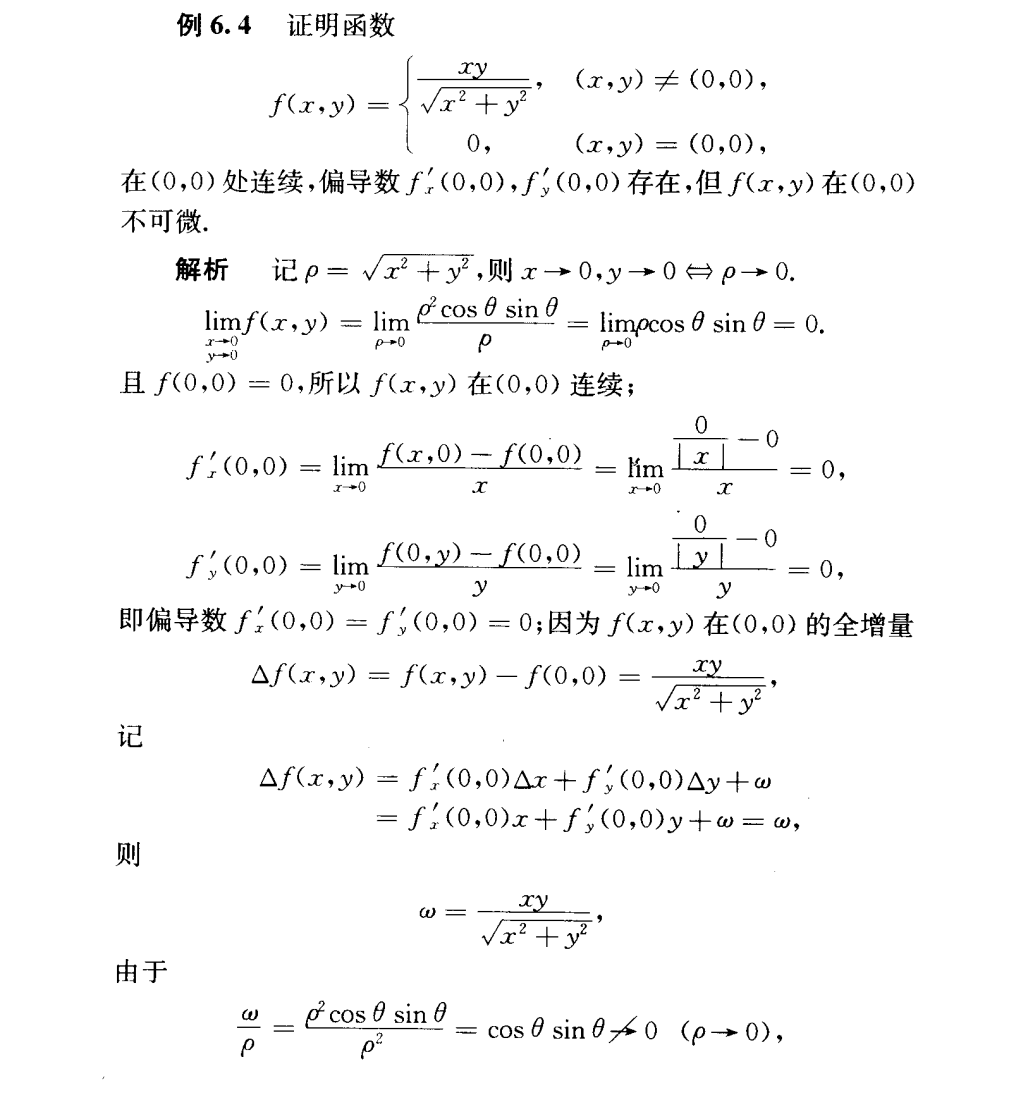 例 6.4 证明函数
f(x,y) = { xy/√(x²+y²), (x,y) ≠ (0,0),
0, (x,y) = (0,0),
在(0,0)处连续,偏导数 f′ₓ(0,0),f′ᵧ(0,0)存在,但 f(x,y)在(0,0)
不可微.
解析 记 ρ = √(x²+y²),则 x→0,y→0⇔ρ→0.
lim_{x→0, y→0} f(x,y) = lim_{ρ→0} ρ²cos θ sin θ/ρ = lim_{ρ→0} ρcos θ sin θ = 0.
且 f(0,0) = 0,所以 f(x,y)在(0,0)连续;
f′ₓ(0,0) = lim_{x→0} (f(x,0) − f(0,0))/x = lim_{x→0} (0/|x| − 0)/x = 0,
f′ᵧ(0,0) = lim_{y→0} (f(0,y) − f(0,0))/y = lim_{y→0} (0/|y| − 0)/y = 0,
即偏导数 f′ₓ(0,0) = f′ᵧ(0,0) = 0;因为 f(x,y)在(0,0)的全增量
△f(x,y) = f(x,y) − f(0,0) = xy/√(x²+y²),
记
△f(x,y) = f′ₓ(0,0)△x + f′ᵧ(0,0)△y + ω
= f′ₓ(0,0)x + f′ᵧ(0,0)y + ω = ω,
则
ω = xy/√(x²+y²),
由于
ω/ρ = ρ²cos θ sin θ/ρ² = cos θ sin θ ↛ 0 (ρ→0),